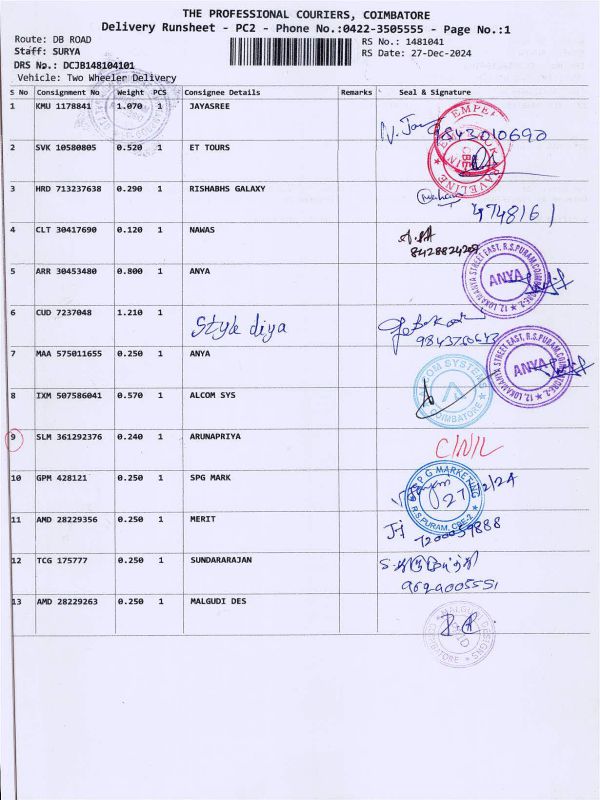 THE PROFESSIONAL COURIERS, COIMBATORE
Delivery Runsheet - PC2 - Phone No.:0422-3505555 - Page No.:1
Route: DB ROAD
RS No.: 1481041
Staff: SURYA
RS Date: 27-Dec-2024
DRS No.: DCJB148104101
Vehicle: Two Wheeler Delivery
S No Consignment No Weight PCS Consignee Details Remarks Seal & Signature
1 KMU 1178841 1.070 1 JAYASREE
9843010690
2 SVK 10580805 0.520 1 ET TOURS
3 HRD 713237638 0.290 1 RISHABHS GALAXY
474816 1
4 CLT 30417690 0.120 1 NAWAS
8428824209
5 ARR 30453480 0.800 1 ANYA
ANYA
12, LOKAMANYA STREET EAST, R.S.PURAM, COIMBATORE-2
6 CUD 7237048 1.210 1 Style diya
7 MAA 575011655 0.250 1 ANYA
ANYA
12, LOKAMANYA STREET EAST, R.S.PURAM, COIMBATORE-2
8 IXM 507586041 0.570 1 ALCOM SYS
ALCOM SYSTEMS
COIMBATORE
9 SLM 361292376 0.240 1 ARUNAPRIYA
C/N/L
10 GPM 428121 0.250 1 SPG MARK
SPG MARKETING
R.S.PURAM, CBE-2
27/12/24
11 AMD 28229356 0.250 1 MERIT
7200059888
12 TCG 175777 0.250 1 SUNDARARAJAN
9629005551
13 AMD 28229263 0.250 1 MALGUDI DES
MALGUDI DESIGNS
COIMBATORE